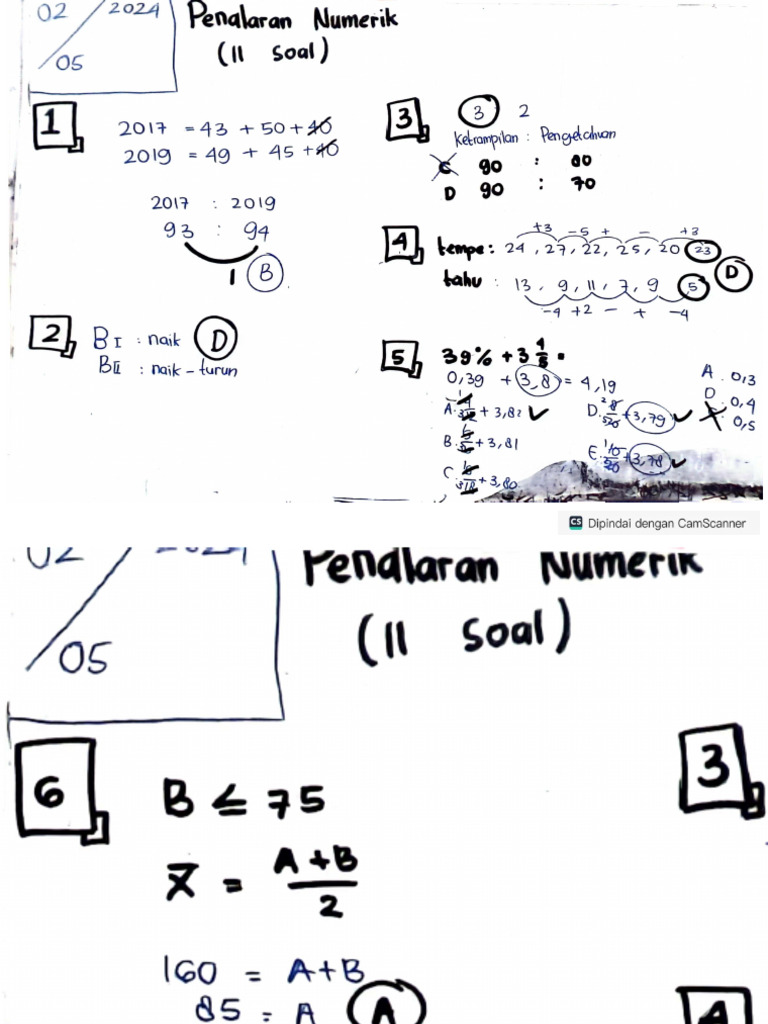 02 / 2024
05
Penalaran Numerik
(11 Soal)
1
2017 = 43 + 50 + 40
2019 = 49 + 45 + 40
2017 : 2019
93 : 94
1 B
2
B I : naik D
B II : naik - turun
3
3 2
Ketrampilan : Pengetahuan
C 90 : 80
D 90 : 70
4
+3 -5 + - +3
tempe : 24 , 27 , 22 , 25 , 20 23
tahu : 13 , 9 , 11 , 7 , 9 5 D
-4 +2 - + -4
5
39% + 3 4/5 =
0,39 + 3,8 = 4,19
+ 3,82 ✓
B. + 3,81
C. + 3,80
D. + 3,79 ✓
E. 10/20 + 3,78 ✓
A. 0,3
D. 0,4
0,5
CS Dipindai dengan CamScanner
02 / 2024
05
Penalaran Numerik
(11 Soal)
6
B ≤ 75
x̄ = A + B / 2
160 = A + B
85 = A A
3
4